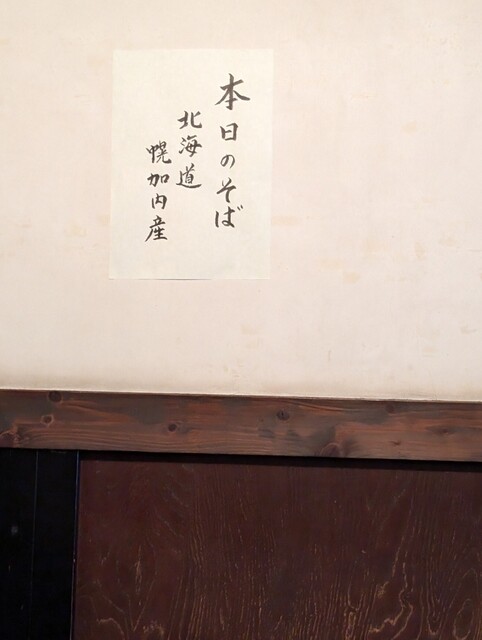 本日のそば
北海道
幌加内産